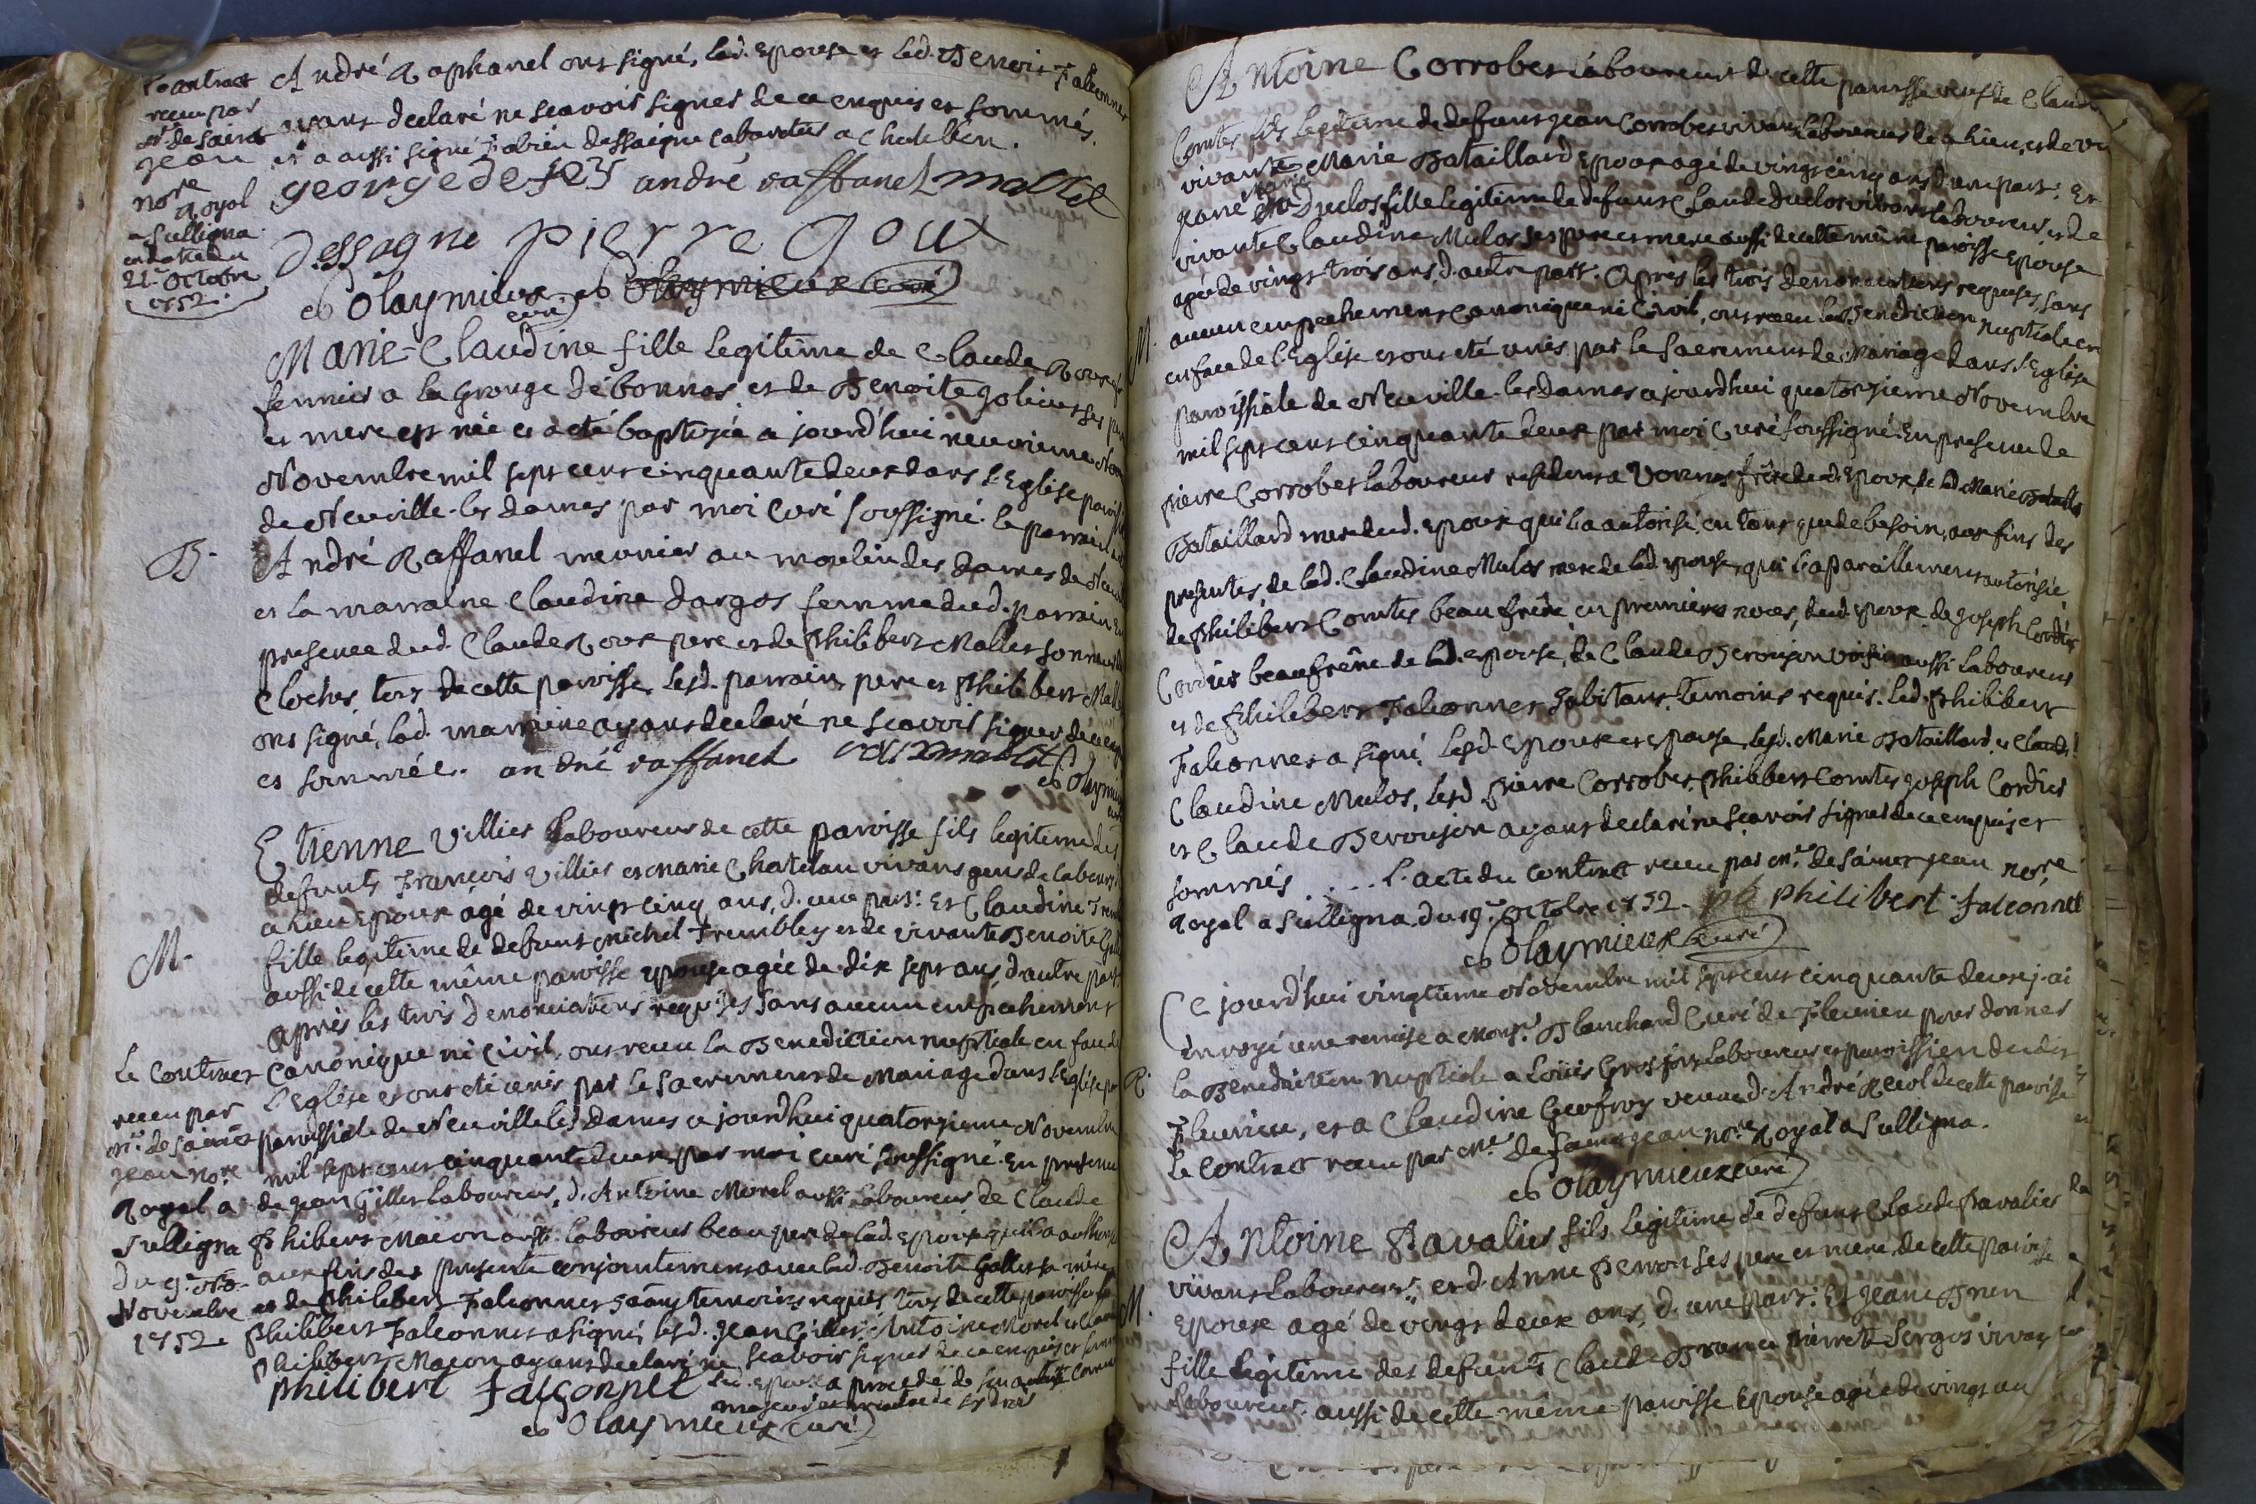 André Raphanel ont signé, lad. Epouse et led. Benoit Falconnet
ayant declaré ne scavoir signer de ce enquis et sommés.
et a aussi signé Fabien dessaigne cabartier a Chatillon.
george de fex andré raffanel mallet
Dessagne pierre Roux
Olaymieux curé
Le contract
receu par
mr. de Saint
jean
nore
Royal
a Sulligna
en date du
21e. Octobre
1752.
B.
Marie-Claudine fille legitime de Claude Roux
fermier a la Grange de bonnas et de Benoite Jolivet ses
et mere est née et a eté baptisée a jourd'hui neuvieme
Novembre mil sept cent cinquante deux dans l'Eglise
de Neuville-les dames par moi curé soussigné. le parrain
André Raffanel meunier au moulin des dames de
et la marraine Claudine dargos femme dud. parrain
presence dud. Claude Roux pere et de Philibert Mallet sonneur
Cloches, tous de cette paroisse, lesd. parrain, pere et Philibert
ont signé, lad. marraine ayant declaré ne scavoir signer de ce
et sommée. andré raffanel mallet
Olaymieux
M.
Etienne Villier Laboureur de cette paroisse fils legitime des
defunts François Villier et marie Chatelan vivans gens de labeur
Epoux agé de vingt cinq ans, d'une part: Et Claudine
fille legitime de defunt michel Trembley et de vivante Benoite
aussi de cette même paroisse epouse agée de dix sept ans, d'autre part
après les trois denonciations requises sans aucun empechement
canonique ni Civil, ont receu la Benediction nuptiale en face de
L'Eglise et ont eté unis par le Sacrement de Mariage dans L'Eglise
paroissiale de Neuville les Dames ce jourd'hui quatorzieme Novembre
mil sept cent cinquante deux, par moi curé soussigné. En presence
de jean Gillet Laboureur, d'Antoine Morel aussi Laboureur de Claude
Philibert Maçon aussi Laboureur beau pere de lad. Epouse qui l'a
aux fins des presente conjointement avec lad. Benoite Gallet sa mère
et de Philibert Falconnet temoins requis tous de cette paroisse
Philibert Falconnet a signé, lesd. jean Gillet, Antoine Morel et
Philibert Maçon ayans declaré ne scavoir signer de ce enquis et
philibert falconnet
Olaymieux curé
Le Contract
receu par
mr. de Saint
jean nore
Royal a
Sulligna
du 9e.
Novembre
1752.
Antoine Corrober Laboureur de cette paroisse veuf de Claudine
Comter fils legitime de defunt jean Corrober vivant Laboureur et de
vivante Marie Bataillard Epoux agé de vingt cinq ans, d'une part: Et
jane Marie Duclos fille legitime de defunt Claude Duclos vivant Laboureur et de
vivante Claudine Mulos ses pere et mere aussi de cette même paroisse Epouse
agée de vingt trois ans, d'autre part. Après les trois denonciations requises, sans
aucun empechement Canonique ni Civil, ont receu la Benediction nuptiale en
en face de l'Eglise et ont eté unis par le Sacrement de Mariage dans l'Eglise
paroissiale de Neuville-les Dames a jourd'hui quatorzieme Novembre
mil sept cent cinquante deux par moi Curé soussigné. En presence de
pierre Corrober Laboureur resident a Vonnas frère dud. Epoux, de lad. Marie
Bataillard mere dud. epoux qui l'a autorisé en tant que de besoin, aux fins des
presentes, de lad. Claudine Mulos mere de lad. epouse, qui l'a pareillement autorisée,
de Philibert Comter beau frère en premieres noces, dud. epoux, de joseph Cordier
Cordier beau frère de lad. epouse, de Claude Beroujon voisin aussi Laboureur
et de Philibert Falconnet habitant, temoins requis. led. Philibert
Falconnet a signé, Lesd. Epoux et epouse, lesd. Marie Bataillard, et
Claudine Mulos, lesd. Pierre Corrober, Philibert Comter, joseph Cordier
et Claude Beroujon ayant declaré ne scavoir signer de ce enquis et
sommés .... L'acte du contract receu par mr. de Saint jean nore.
Royal a Sulligna du 19e. Octobre 1752. philibert falconnet
Olaymieux curé
M.
R.
Ce jourd'hui vingtieme Novembre mil sept cent cinquante deux j'ai
envoyé une remise a Monsr. Blanchard Curé de Fleurieu pour donner
la Benediction nuptiale a Loüis Grosjon Laboureur et paroissien dudit
Fleurieu, et a Claudine Geofroy veuve d'André Reiol de cette paroisse
Le Contract receu par mr. de Saint jean nore Royal a Sulligna.
Olaymieux curé
M.
Antoine Pavalier fils legitime de defunt Claude Pavalier
vivant Laboureur: et d'Anne Perron ses pere et mere, de cette paroisse
Epoux agé de vingt deux ans, d'une part: Et jeane
fille legitime des defunts Claude et pierrette Sergos vivans
Laboureur, aussi de cette même paroisse Epouse agée de vingt un